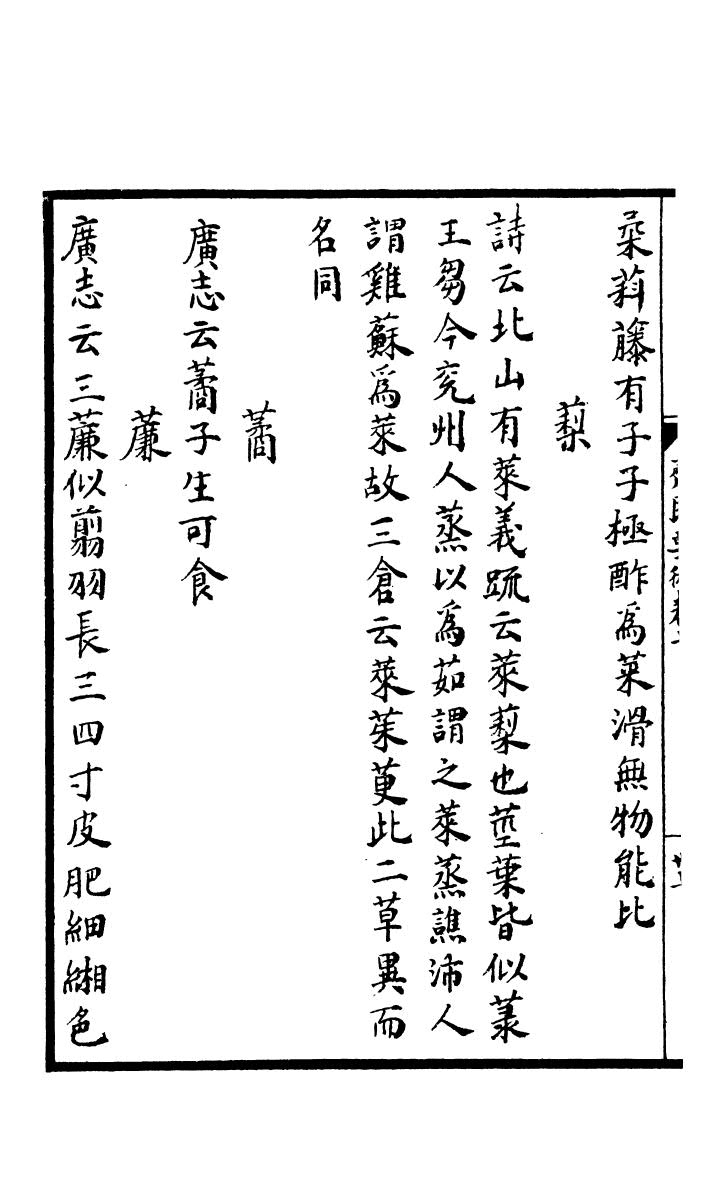 菜藤有子子極酢為菜滑無物能比
藜
詩云北山有萊義疏云萊藜也莖葉皆似菉
王芻今兖州人蒸以為茹謂之萊蒸譙沛人
謂雞蘇為萊故三倉云萊茱萸此二草異而
名同
藚
廣志云藚子生可食
薕
廣志云三薕似翦羽長三四寸皮肥細緗色